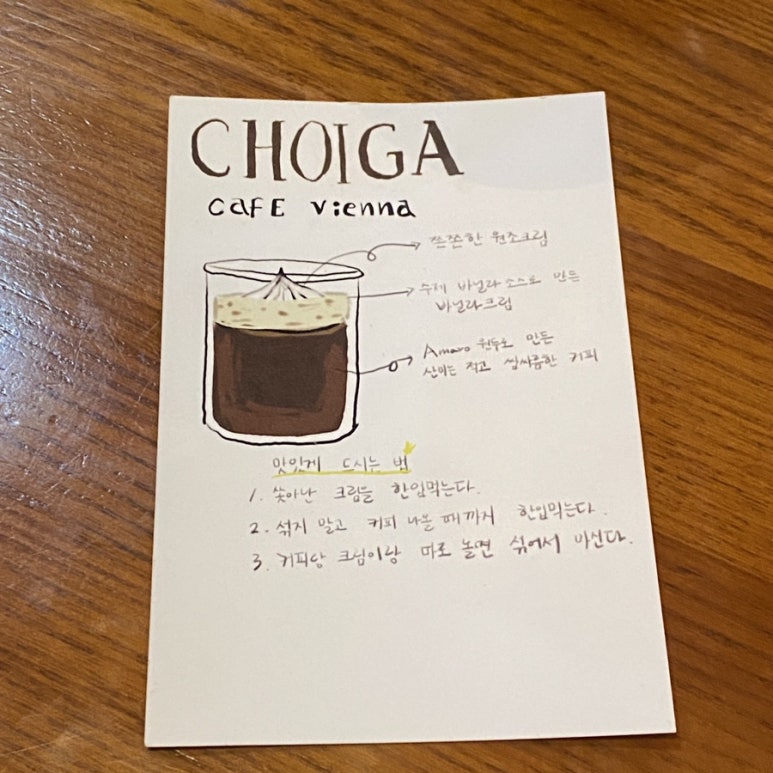 CHOIGA
cafE vienna
쫀쫀한 원조크림
수제 바닐라 소스로 만든
바닐라크림
Amaro 원두로 만든
산미는 적고 쌉싸름한 커피
맛있게 드시는 법
1. 쏫아난 크림을 한입먹는다.
2. 섞지 말고 커피 나올 때까지 한입먹는다.
3. 커피랑 크림이랑 따로 놀면 섞어서 마신다.